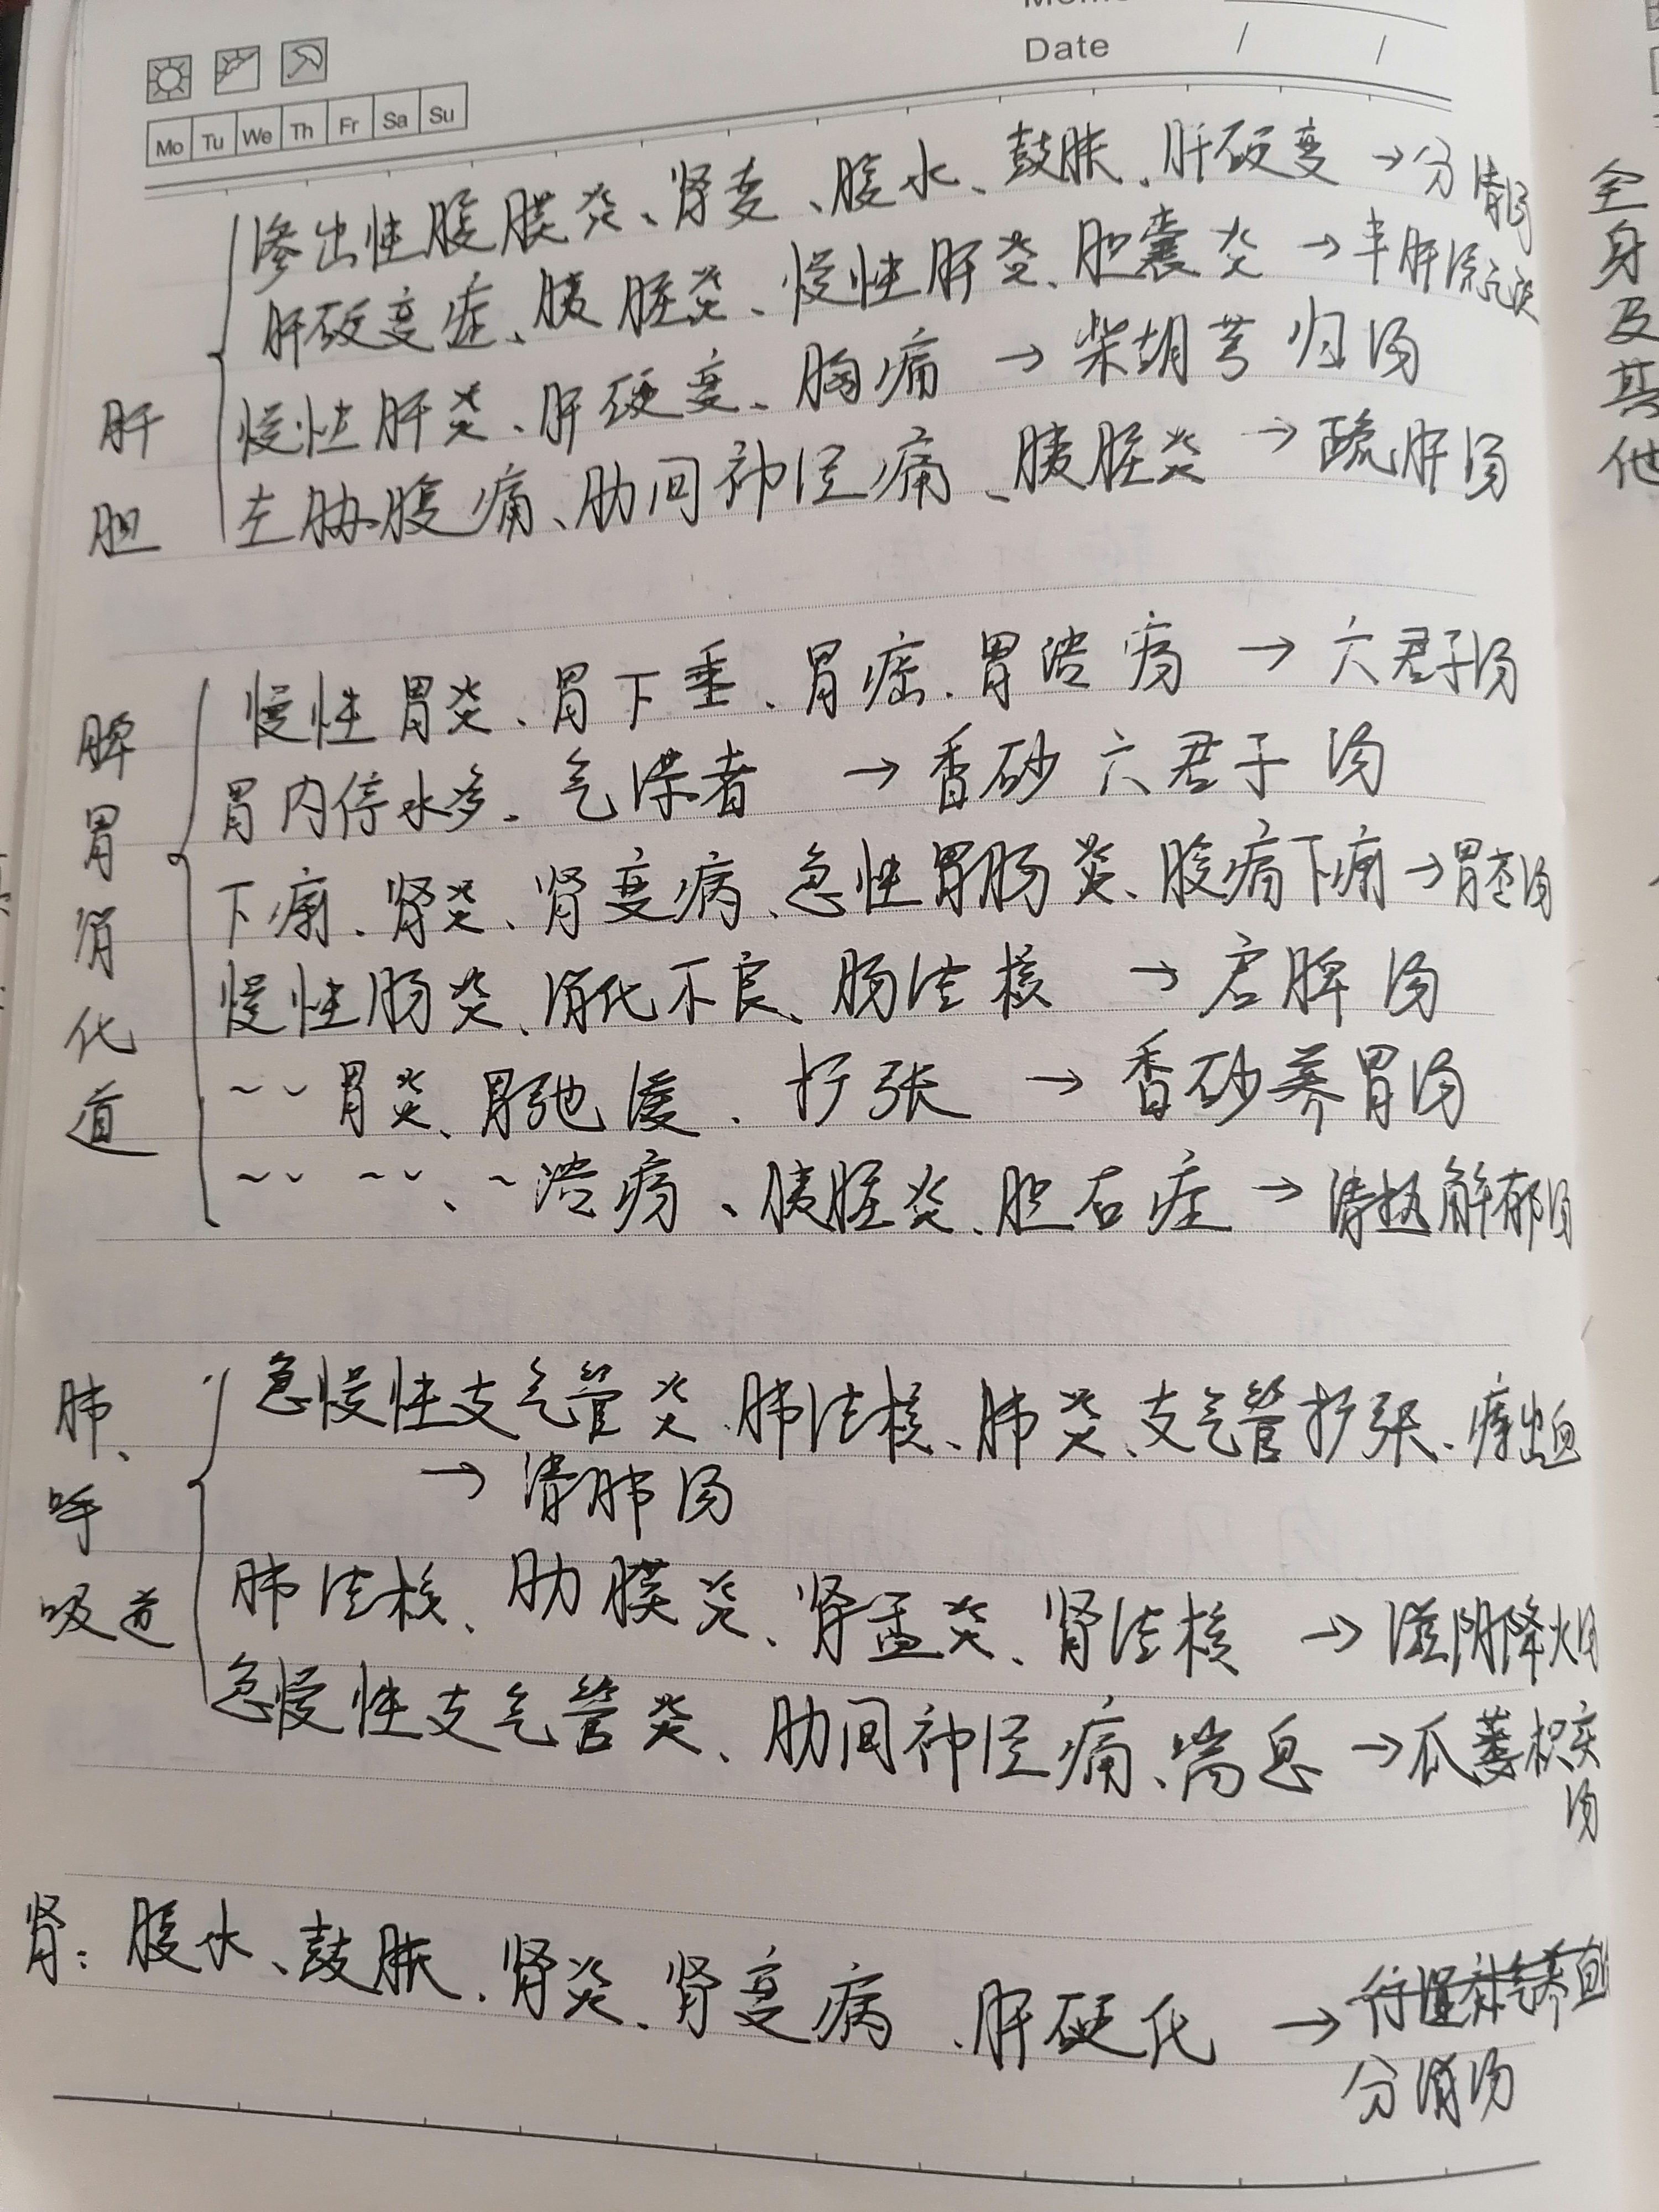 Date / /
Mo Tu We Th Fr Sa Su
肝胆
渗出性腹膜炎、肾变、腹水、鼓胀、肝硬变 → 分消汤
肝硬变症、胰脏炎、慢性肝炎、胆囊炎 → 半肝
慢性肝炎、肝硬变、胸痛 → 柴胡芎归汤
左胁腹痛、肋间神经痛、胰脏炎 → 疏肝汤
脾胃消化道
慢性胃炎、胃下垂、胃癌、胃溃疡 → 六君子汤
胃内停水多、气滞者 → 香砂六君子汤
下痢、肾炎、肾变病、急性胃肠炎、腹痛下痢 → 胃苓汤
慢性肠炎、消化不良、肠结核 → 启脾汤
~ ~ 胃炎、胃弛缓、扩张 → 香砂养胃汤
~ ~ ~ ~、~溃疡、胰脏炎、胆石症 → 清热解郁汤
肺、呼吸道
急慢性支气管炎、肺结核、肺炎、支气管扩张、痔出血
→ 清肺汤
肺结核、肋膜炎、肾盂炎、肾结核 → 滋阴降火汤
急慢性支气管炎、肋间神经痛、喘息 → 瓜蒌枳实
汤
肾：腹水、鼓胀、肾炎、肾变病、肝硬化 →
分消汤
全身及其他